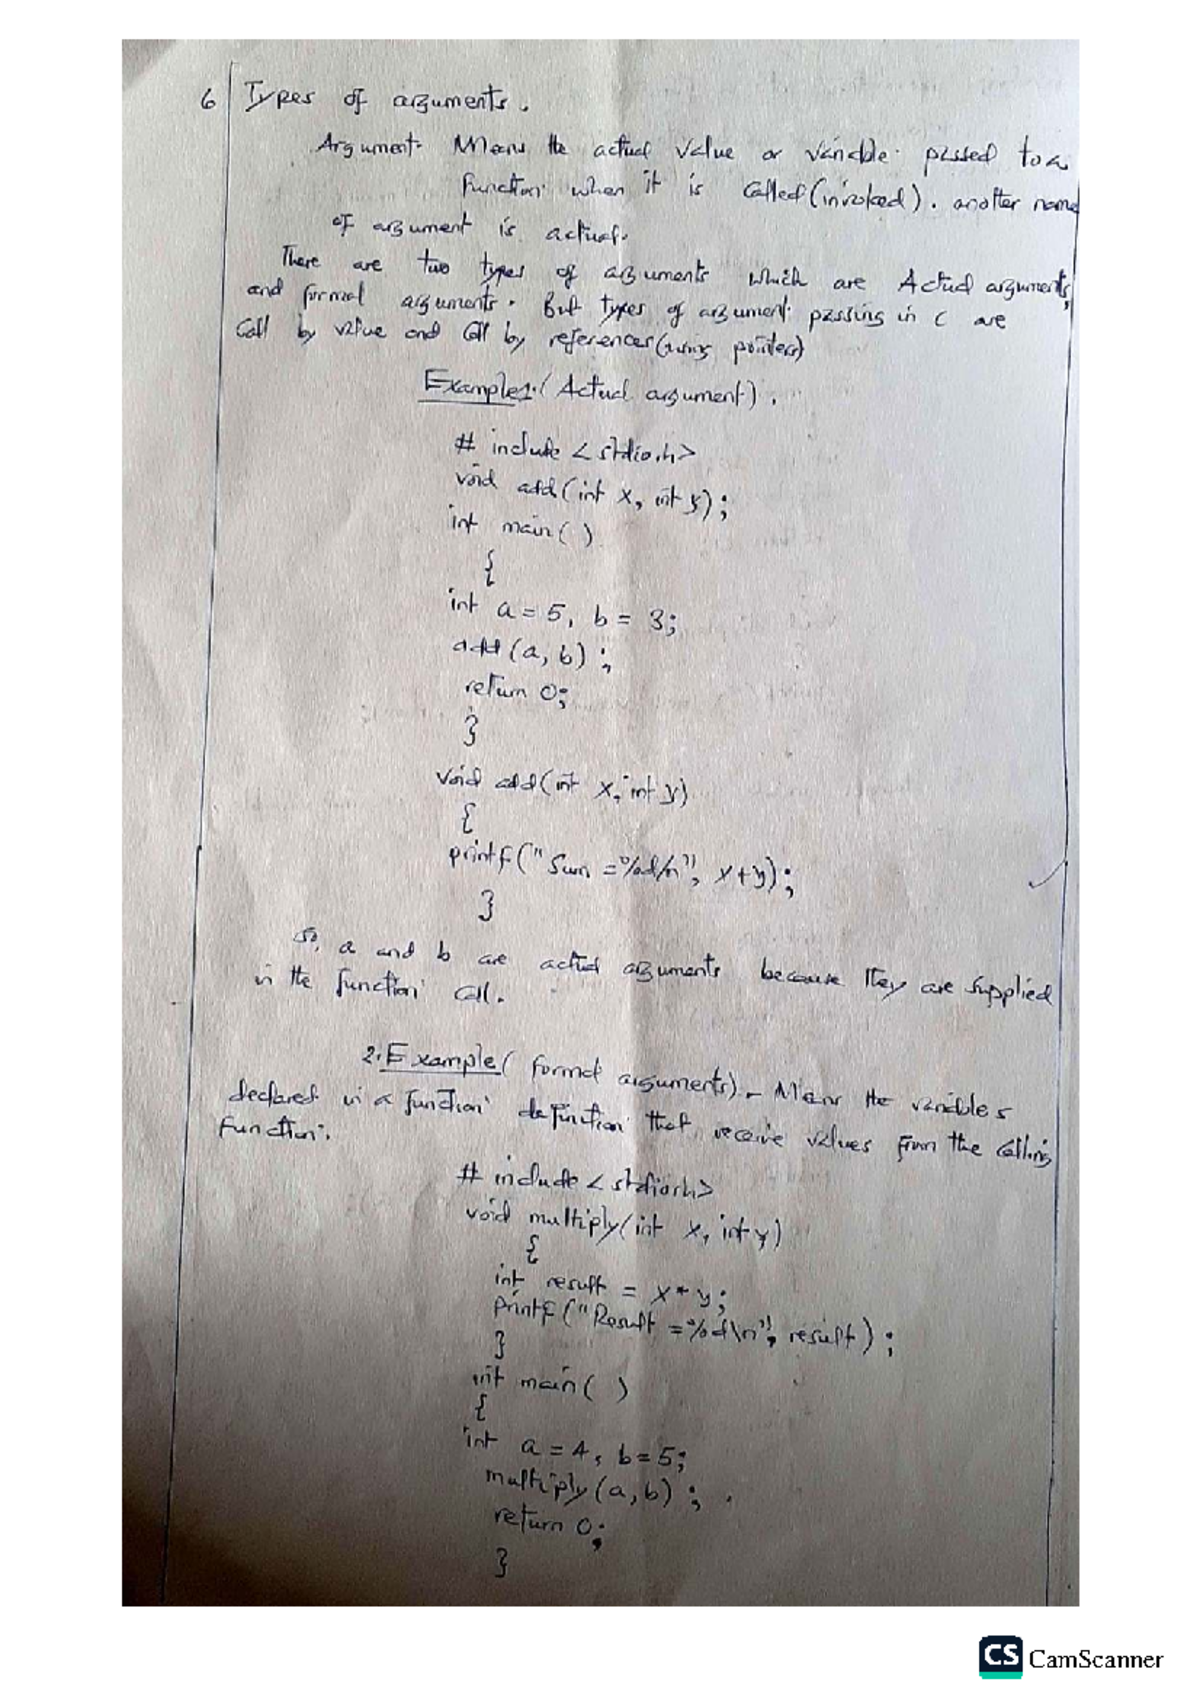 6 Types of arguments.
Argument- Means the actual value or variable passed to a
function when it is called (invoked). another name
of argument is actual.
There are two types of arguments which are Actual arguments,
and formal arguments. But types of argument passing in C are
Call by value and Call by references (using pointers)
Example1. (Actual argument).
# include <stdio.h>
void add(int x, int y);
int main( )
{
int a = 5, b = 3;
add (a, b) ;
return 0;
}
void add(int x, int y)
{
printf("Sum =%d/n", x+y);
}
So, a and b are actual arguments because they are supplied
in the function call.
2. Example( formal arguments). Means the variables
declared in a function definition that receive values from the calling
function.
# include <stdio.h>
void multiply(int x, int y)
{
int result = x * y;
printf ("Result =%d\n", result) ;
}
int main( )
{
int a = 4, b = 5;
multiply (a, b) ;
return 0;
}
CS CamScanner